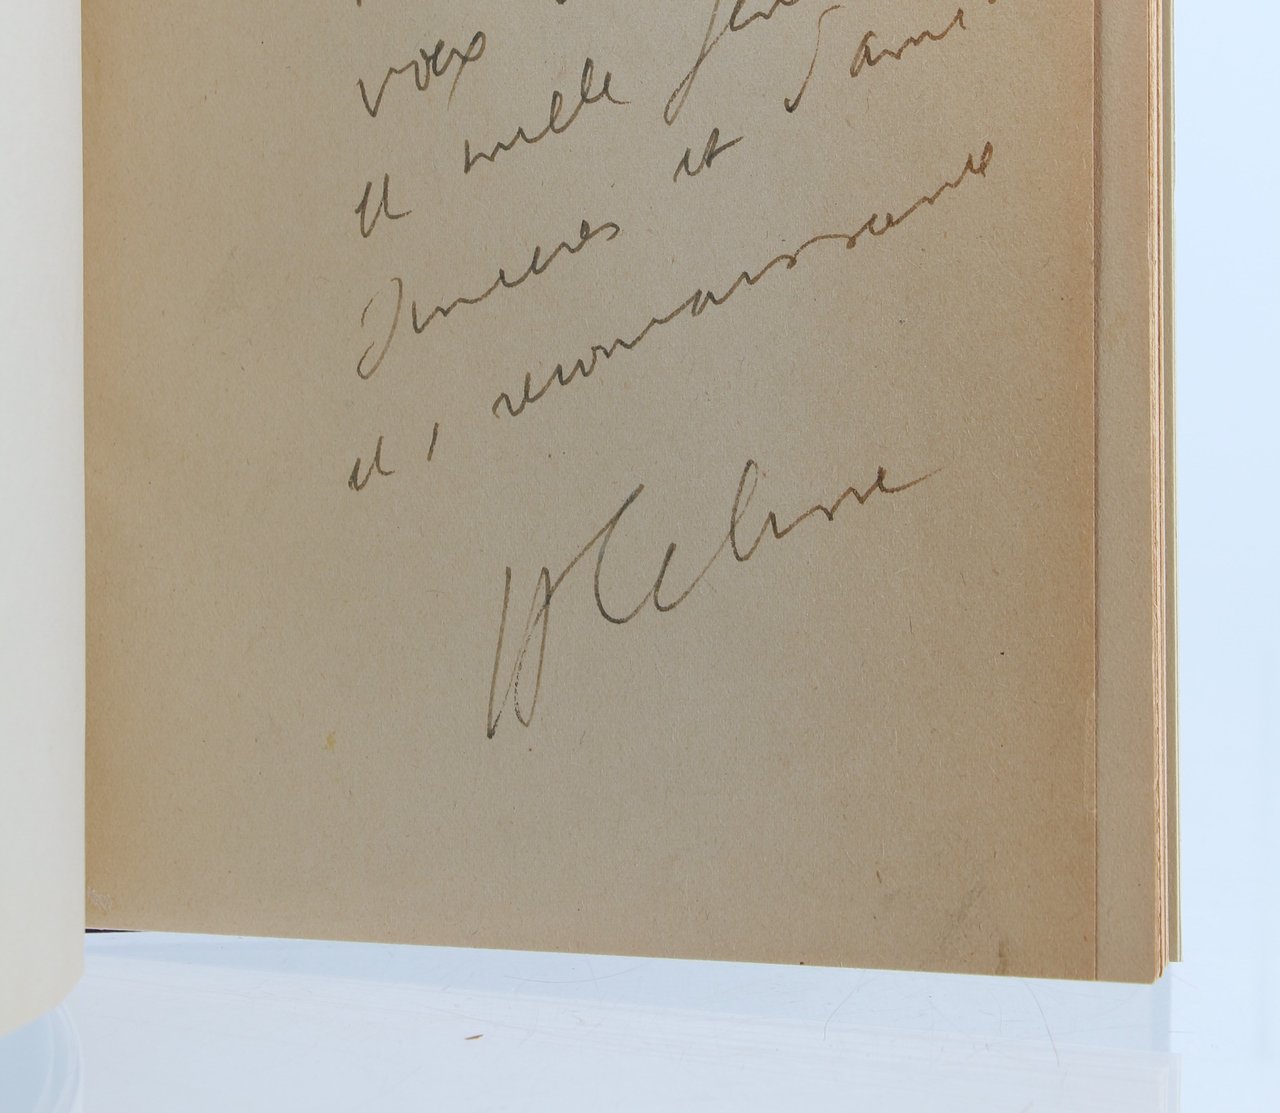 voix
et mille
sincères et d'ami
et, reconnaissance
LF Celine